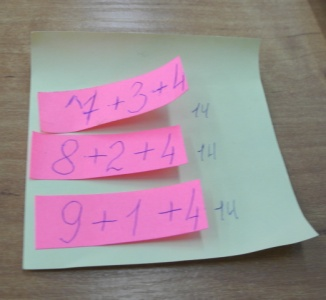 7+3+4 14
8+2+4 14
9+1+4 14